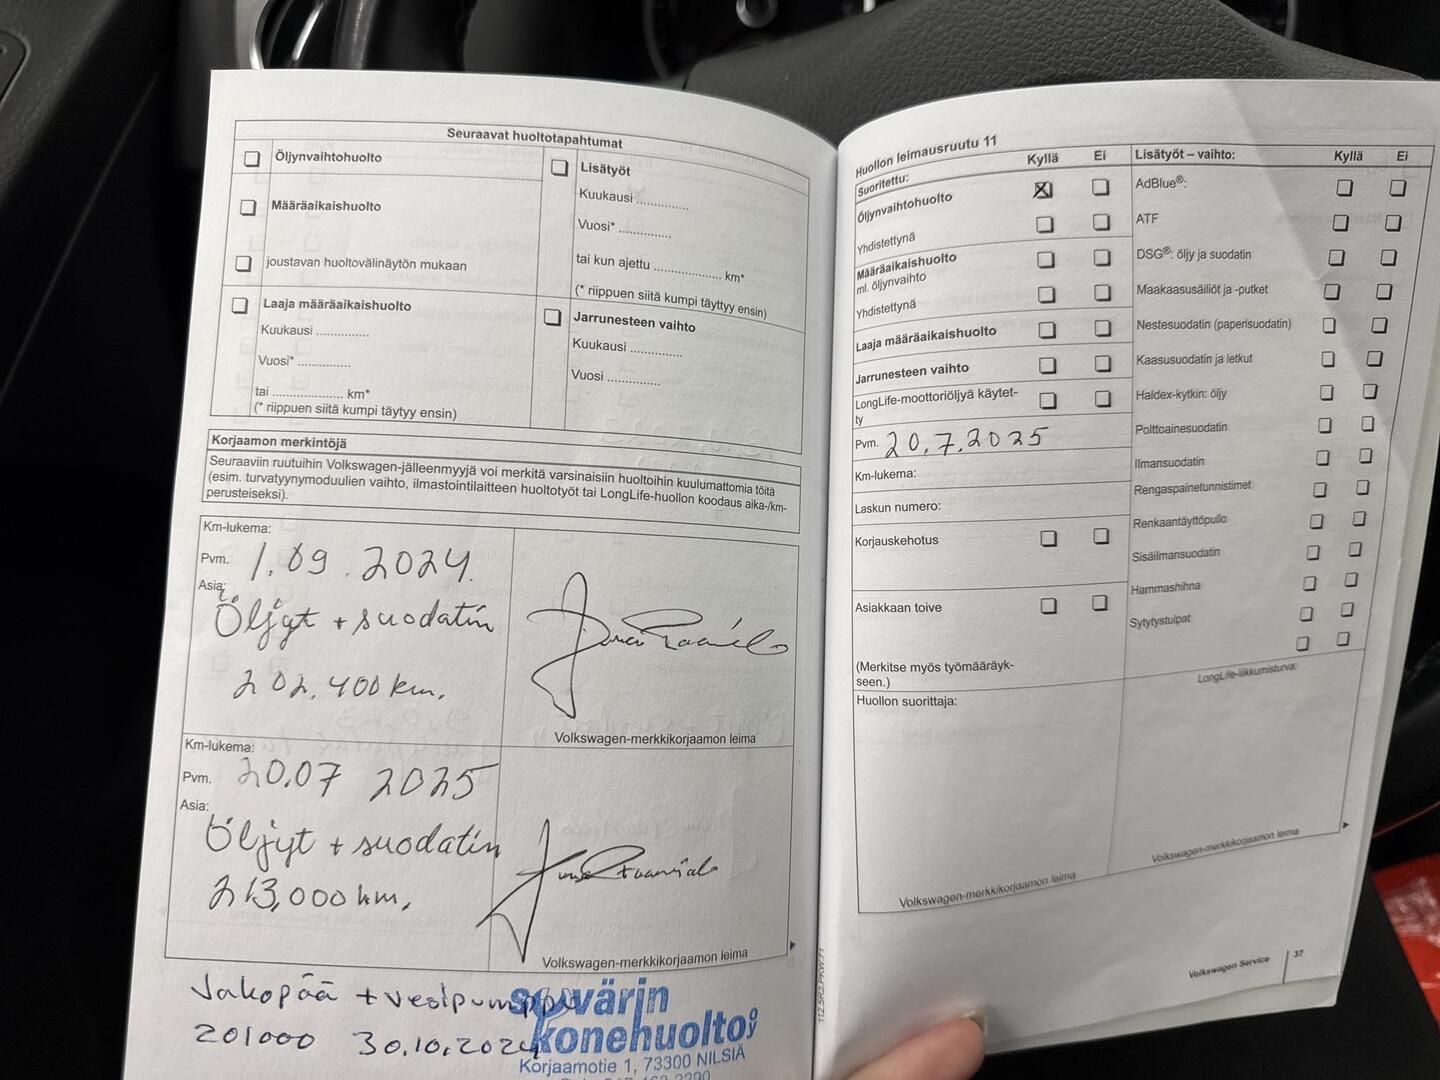 Seuraavat huoltotapahtumat
Öljynvaihtohuolto
Määräaikaishuolto
joustavan huoltovälinäytön mukaan
Laaja määräaikaishuolto
Kuukausi ..............
Vuosi* ..............
tai ................... km*
(* riippuen siitä kumpi täytyy ensin)
Lisätyöt
Kuukausi ..............
Vuosi* ..............
tai kun ajettu .................. km*
(* riippuen siitä kumpi täyttyy ensin)
Jarrunesteen vaihto
Kuukausi ..............
Vuosi ..............
Korjaamon merkintöjä
Seuraaviin ruutuihin Volkswagen-jälleenmyyjä voi merkitä varsinaisiin huoltoihin kuulumattomia töitä
(esim. turvatyynymoduulien vaihto, ilmastointilaitteen huoltotyöt tai LongLife-huollon koodaus aika-/km-
perusteiseksi).
Km-lukema:
Pvm. 1.09.2024.
Asia:
Öljyt + suodatin
202.400 km.
Volkswagen-merkkikorjaamon leima
Km-lukema:
Pvm. 20.07 2025
Asia:
Öljyt + suodatin
213,000 km.
Volkswagen-merkkikorjaamon leima
Jakopää + vesipumppu
201000 30.10.2024
savärin
konehuolto oy
Korjaamotie 1, 73300 NILSIÄ
112.5R3.PKW.71
Huollon leimausruutu 11
Suoritettu:
Kyllä
Ei
Öljynvaihtohuolto
Yhdistettynä
Määräaikaishuolto
ml. öljynvaihto
Yhdistettynä
Laaja määräaikaishuolto
Jarrunesteen vaihto
LongLife-moottoriöljyä käytet-
ty
Pvm. 20.7.2025
Km-lukema:
Laskun numero:
Korjauskehotus
Asiakkaan toive
(Merkitse myös työmääräyk-
seen.)
Huollon suorittaja:
Volkswagen-merkkikorjaamon leima
Lisätyöt – vaihto:
Kyllä
Ei
AdBlue®:
ATF
DSG®: öljy ja suodatin
Maakaasusäiliöt ja -putket
Nestesuodatin (paperisuodatin)
Kaasusuodatin ja letkut
Haldex-kytkin: öljy
Polttoainesuodatin
Ilmansuodatin
Rengaspainetunnistimet
Renkaantäyttöpullo
Sisäilmansuodatin
Hammashihna
Sytytystulpat
LongLife-liikkumisturva:
Volkswagen-merkkikorjaamon leima
Volkswagen Service
37